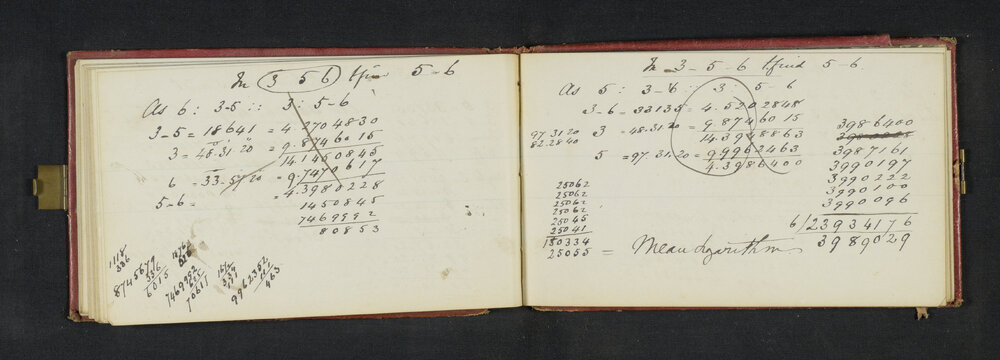 In 3 5 6 t find 5-6
As 6 : 3-5 :: 3 : 5-6
3-5 = 18641 = 4.2704830
3 = 48.31.20 = 9.8746015
14.1450845
6 = 33.57.20 = 9.7470617
5-6 = = 4.3980228
1450845
7469992
80853
1118
336
8745679
336
6015
7469992
625
70617
9962352
111
463
In 3-5-6 t find 5-6
As 5 : 3-6 :: 3 : 5-6
3-6 = 33135 = 4.5202848
97.31.20
82.28.40
3 -48.31.20 = 9.8746015
14.3948863
5 = 97.31.20 = 9.9962463
4.3986400
3986400
3987161
3990197
3990222
3990100
3990096
6/23934176
3989029
25062
25062
25062
25062
25045
25041
150334
25055 = Mean Logarithm